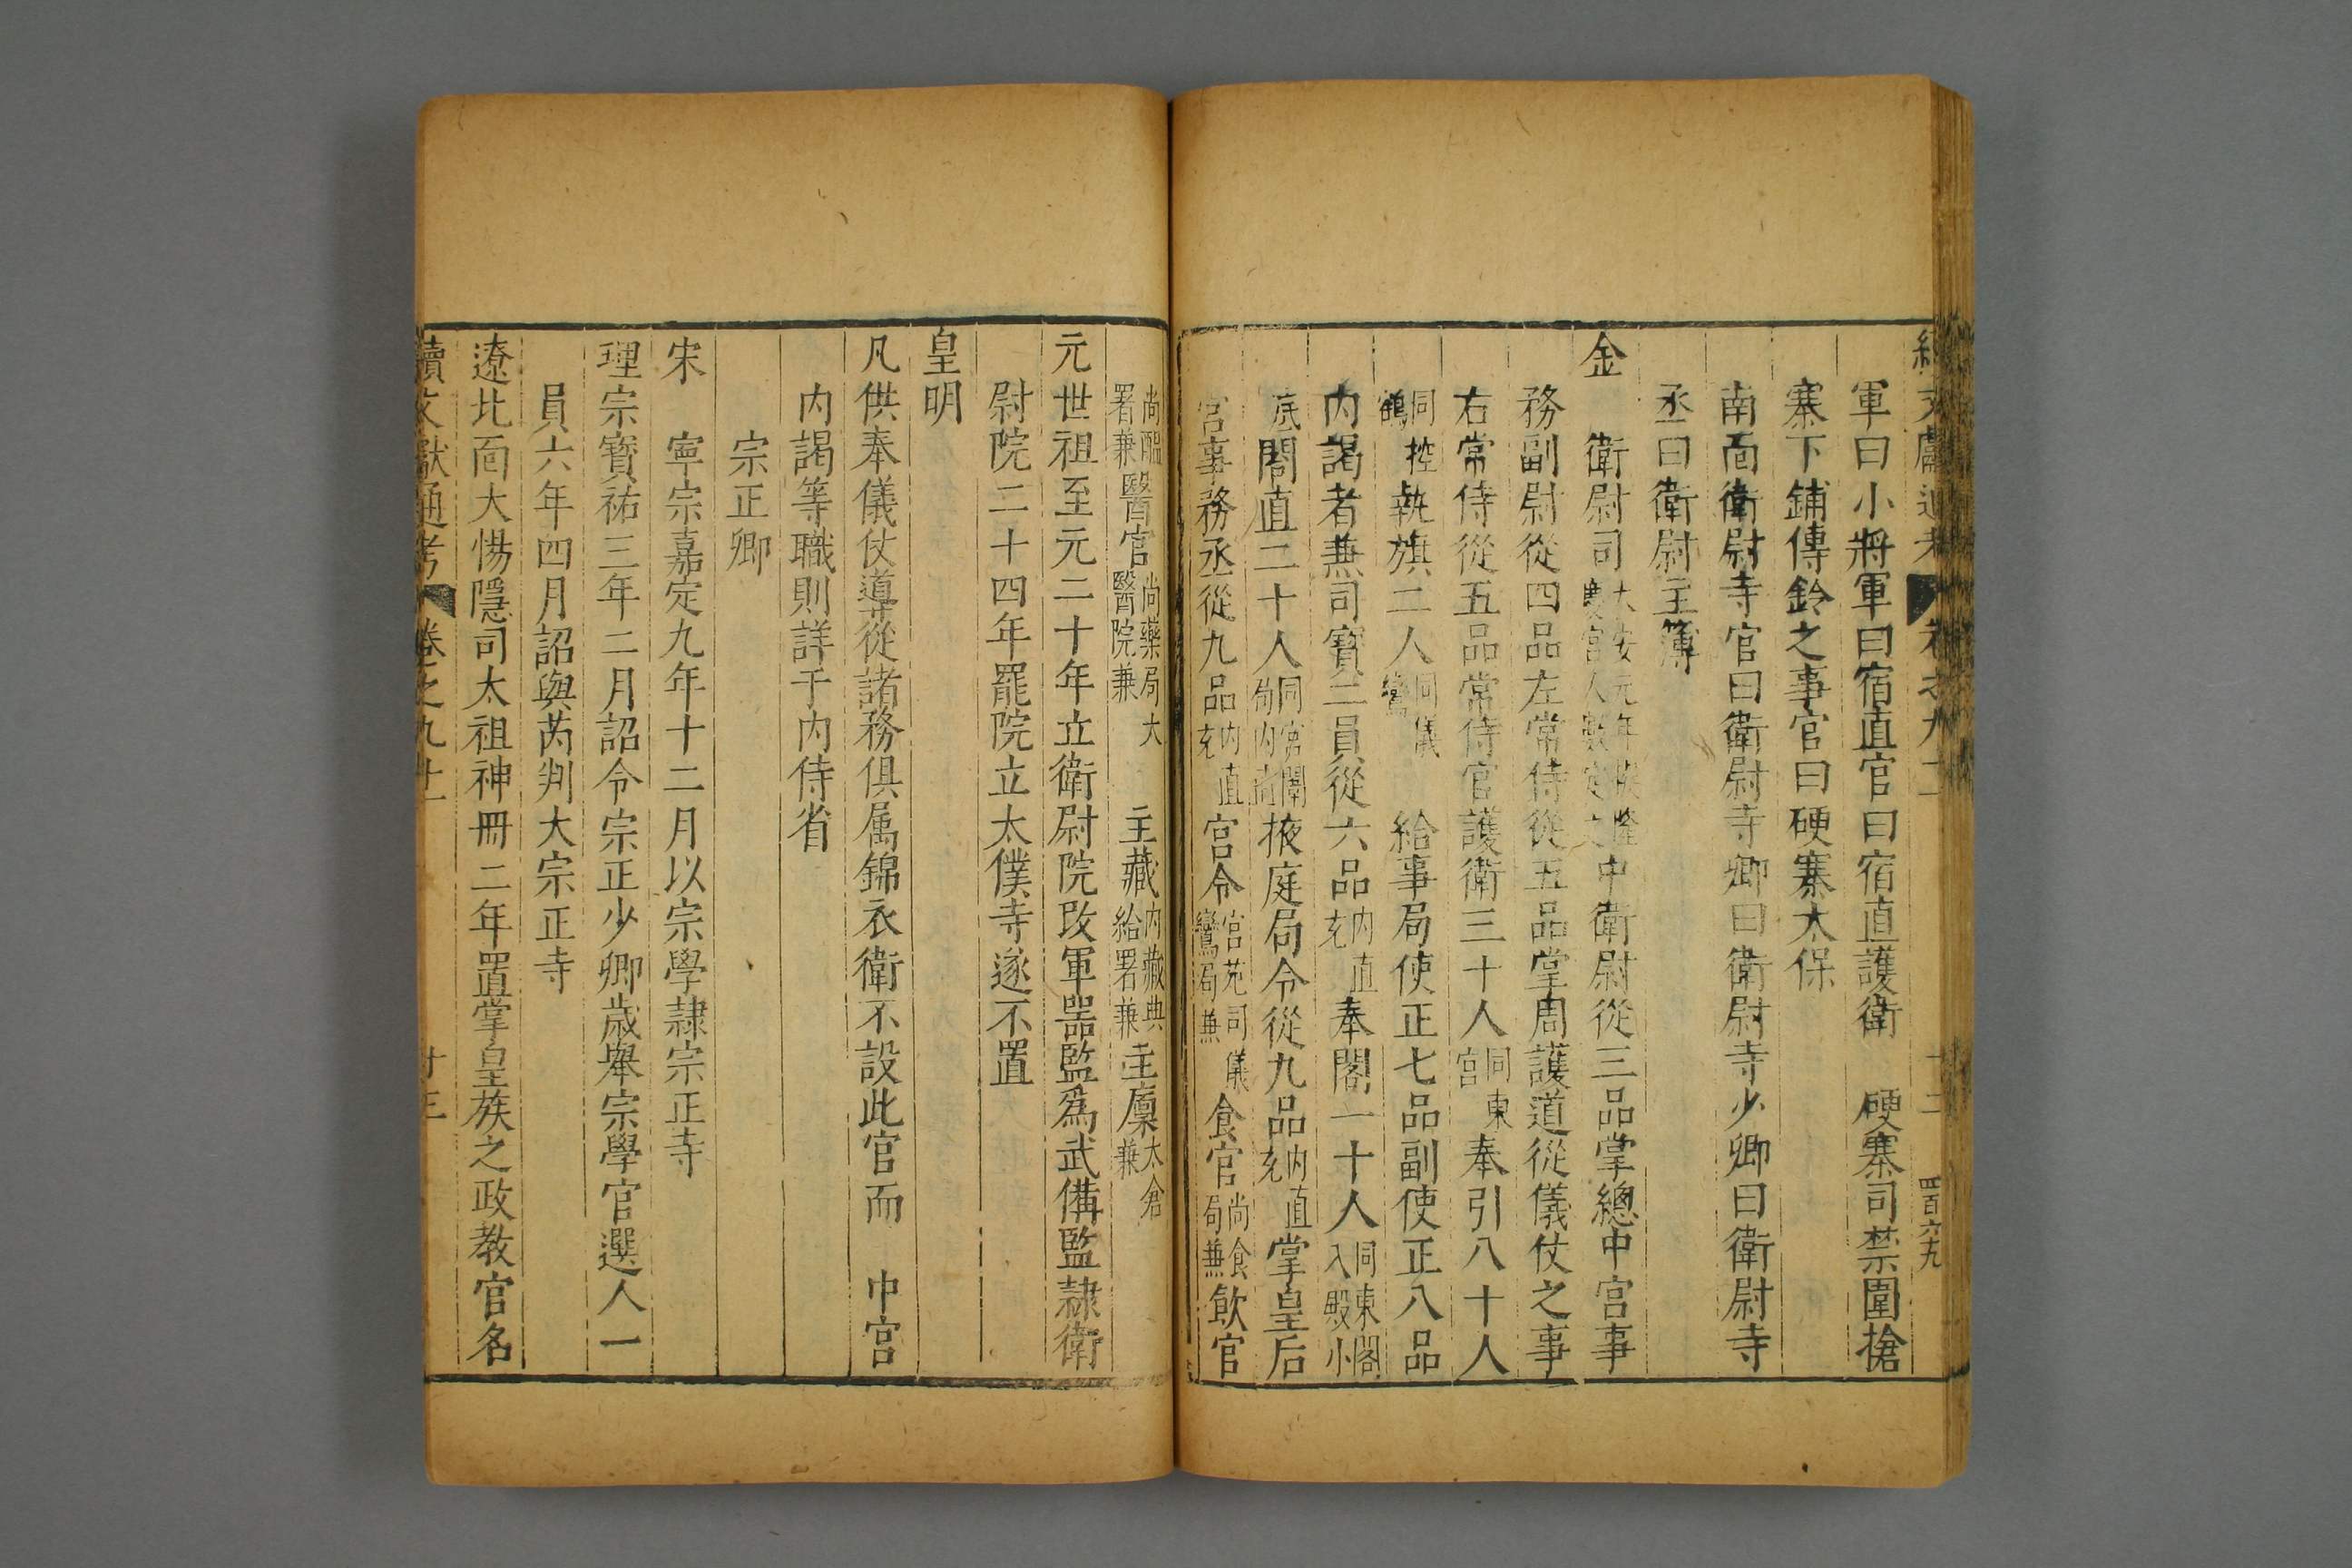 續文獻通考 卷之九十二 十二 四百六九
軍曰小將軍曰宿直官曰宿直護衛 硬寨司禁圍槍
寨下鋪傳鈴之事官曰硬寨太保
南面衛尉寺官曰衛尉寺卿曰衛尉寺少卿曰衛尉寺
丞曰衛尉主簿
金 衛尉司大安元年隆慶宮人數定之中衛尉從三品掌總中宮事
務副尉從四品左常侍從五品掌周護道從儀仗之事
右常侍從五品常侍官護衛三十人同東宮奉引八十人
同控鶴執旗二人同儀鸞 給事局使正七品副使正八品
内謁者兼司寳二員從六品内直充奉閣一十人同東閤入殿小
底閣直二十人同宮闈局内直掖庭局令從九品内直充掌皇后
宮事務丞從九品内直充宮令宮苑司儀鸞局兼食官尚食局兼飲官
尚醞署兼醫官尚藥局太醫院兼 主藏内藏典給署兼主廩太倉兼
元世祖至元二十年立衛尉院改軍器監爲武備監隷衛
尉院二十四年罷院立太僕寺遂不置
皇明
凡供奉儀仗導從諸務俱属錦衣衛不設此官而 中宮
内謁等職則詳于内侍省
宗正卿
宋 寧宗嘉定九年十二月以宗學隷宗正寺
理宗寳祐三年二月詔令宗正少卿歲舉宗學官選人一
員六年四月詔與芮判大宗正寺
遼北面大惕隱司太祖神冊二年置掌皇族之政教官名
續文獻通考 卷之九十二 十三